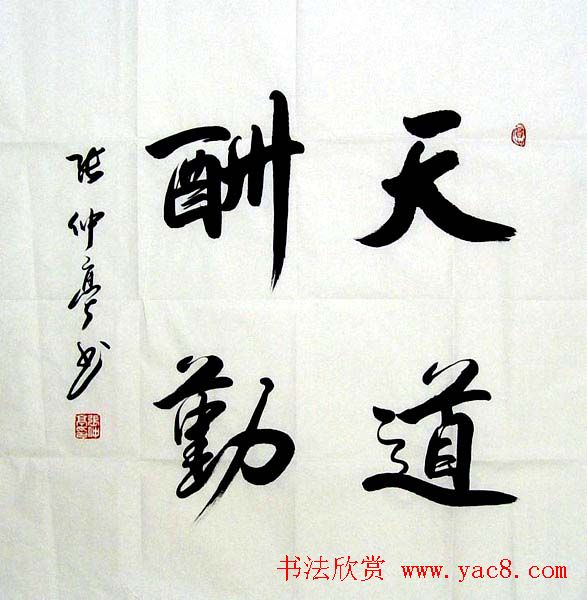 天道
酬勤
张仲亭书
书法欣赏 www.yac8.com